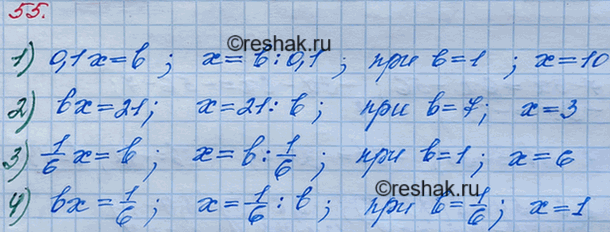 55.
©reshak.ru
1) 0,1x=b; x=b:0,1; при b=1; x=10
2) bx=21; x=21:b; при b=7; x=3
3) 1/6 x=b; x=b:1/6; при b=1; x=6
4) bx=1/6; x=1/6:b; при b=1/6; x=1
©reshak.ru